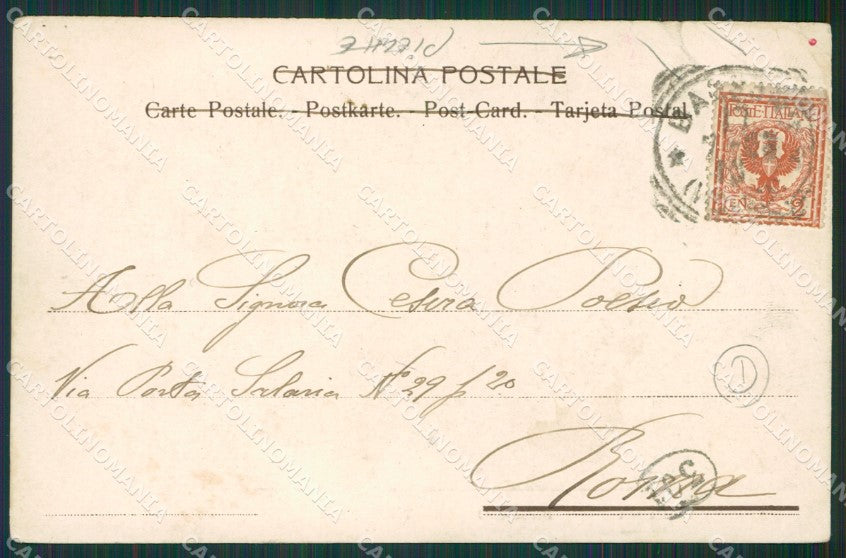 CARTOLINA POSTALE
Carte Postale. - Postkarte. - Post-Card. - Tarjeta Postal
POSTE ITALIANE
CEN. 2
Alla Signora Cesira Poesio
Via Porta Salaria N° 29 p 20
1
Roma
CARTOLINOMANIA